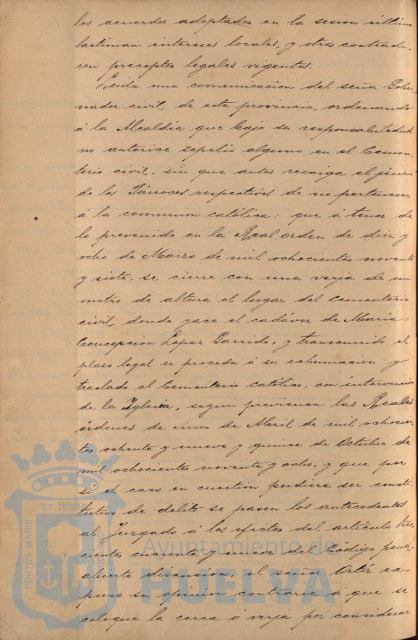 los acuerdos adoptados en la sesion última
lastiman intereses locales, y otros contradi-
cen preceptos legales vigentes.
Leida una comunicacion del señor Gober-
nador civil de esta provincia, ordenando
á la Alcaldia que bajo su responsabilidad
no autorice sepelio alguno en el Cemen-
terio civil, sin que antes recaiga el juicio
de los Párrocos respectivos de no pertenecer
á la comunion católica: que á tenor de
lo prevenido en la Real orden de diez y
ocho de Marzo de mil ochocientos noventa
y siete, se cierre con una verja de un
metro de altura el lugar del cementerio
civil donde yace el cadáver de Maria
Concepcion Lopez Garrido, y transcurrido el
plazo legal se proceda á su exhumacion y
traslado al Cementerio católico, con intervencion
de la Iglesia, segun previenen las Reales
órdenes de cinco de Abril de mil ochocien-
tos ochenta y nueve y quince de Octubre de
mil ochocientos noventa y ocho, y que por
si el caso en cuestion pudiera ser consti-
tutivo de delito se pasen los antecedentes
al Juzgado á los efectos del artículo tres-
cientos cuarenta y nueve del Código penal,
abierta discusion, el señor Ortiz ex-
puso su opinion contraria á que se
coloque la cerca ó verja por considerar
PORTUS MARIS ET TERRAE
Ayuntamiento de
HUELVA